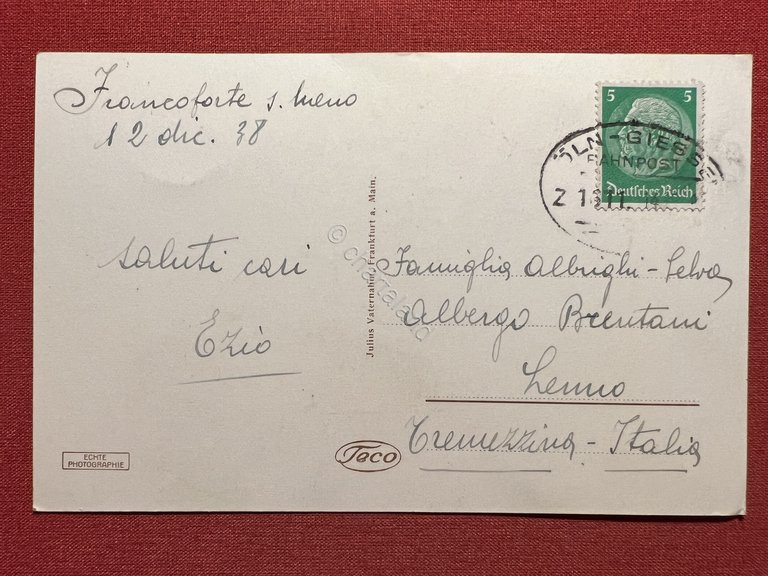 Francoforte s. Meno
12 dic. 38
saluti cari
Ezio
Famiglia Albrighi-Selva
Albergo Brentani
Lenno
Tremezzina - Italia
5 5
Deutsches Reich
ÖLN-GIESS
BAHNPOST
Julius Vaternahm, Frankfurt a. Main.
ECHTE
PHOTOGRAPHIE
Taco